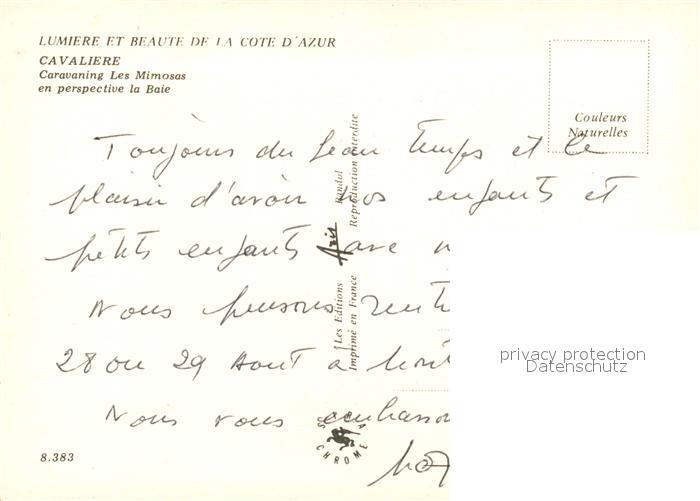 LUMIERE ET BEAUTE DE LA COTE D'AZUR
CAVALIERE
Caravaning Les Mimosas
en perspective la Baie
Couleurs
Naturelles
Toujours du beau temps et le
plaisir d'avoir nos enfants et
petits enfants avec
Nous pensons
28 ou 29 Aout a
Nous vous
Les Editions Aris Bandol
Imprimé en France Reproduction interdite
CHROME
8.383
privacy protection
Datenschutz